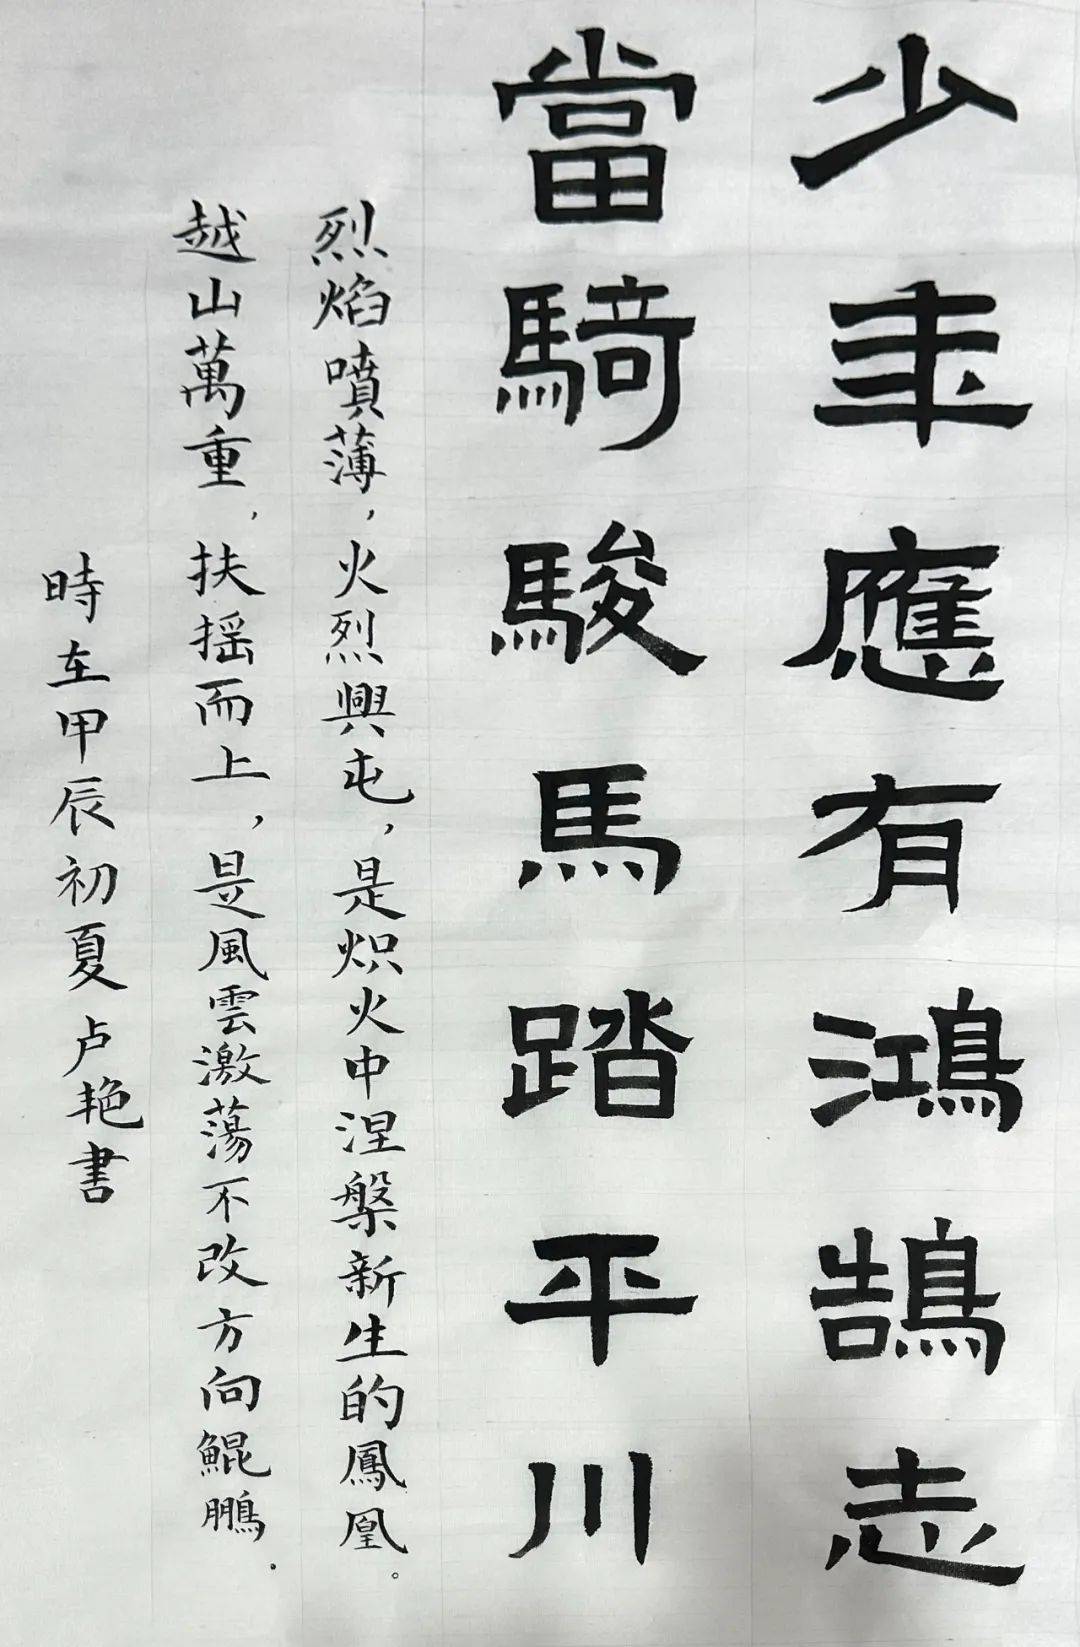 少年應有鴻鵠志
當騎駿馬踏平川
烈焰噴薄，火烈興屯，是炽火中涅槃新生的鳳凰。
越山萬重，扶摇而上，是風雲激蕩不改方向鯤鵬．
時在甲辰初夏卢艳書